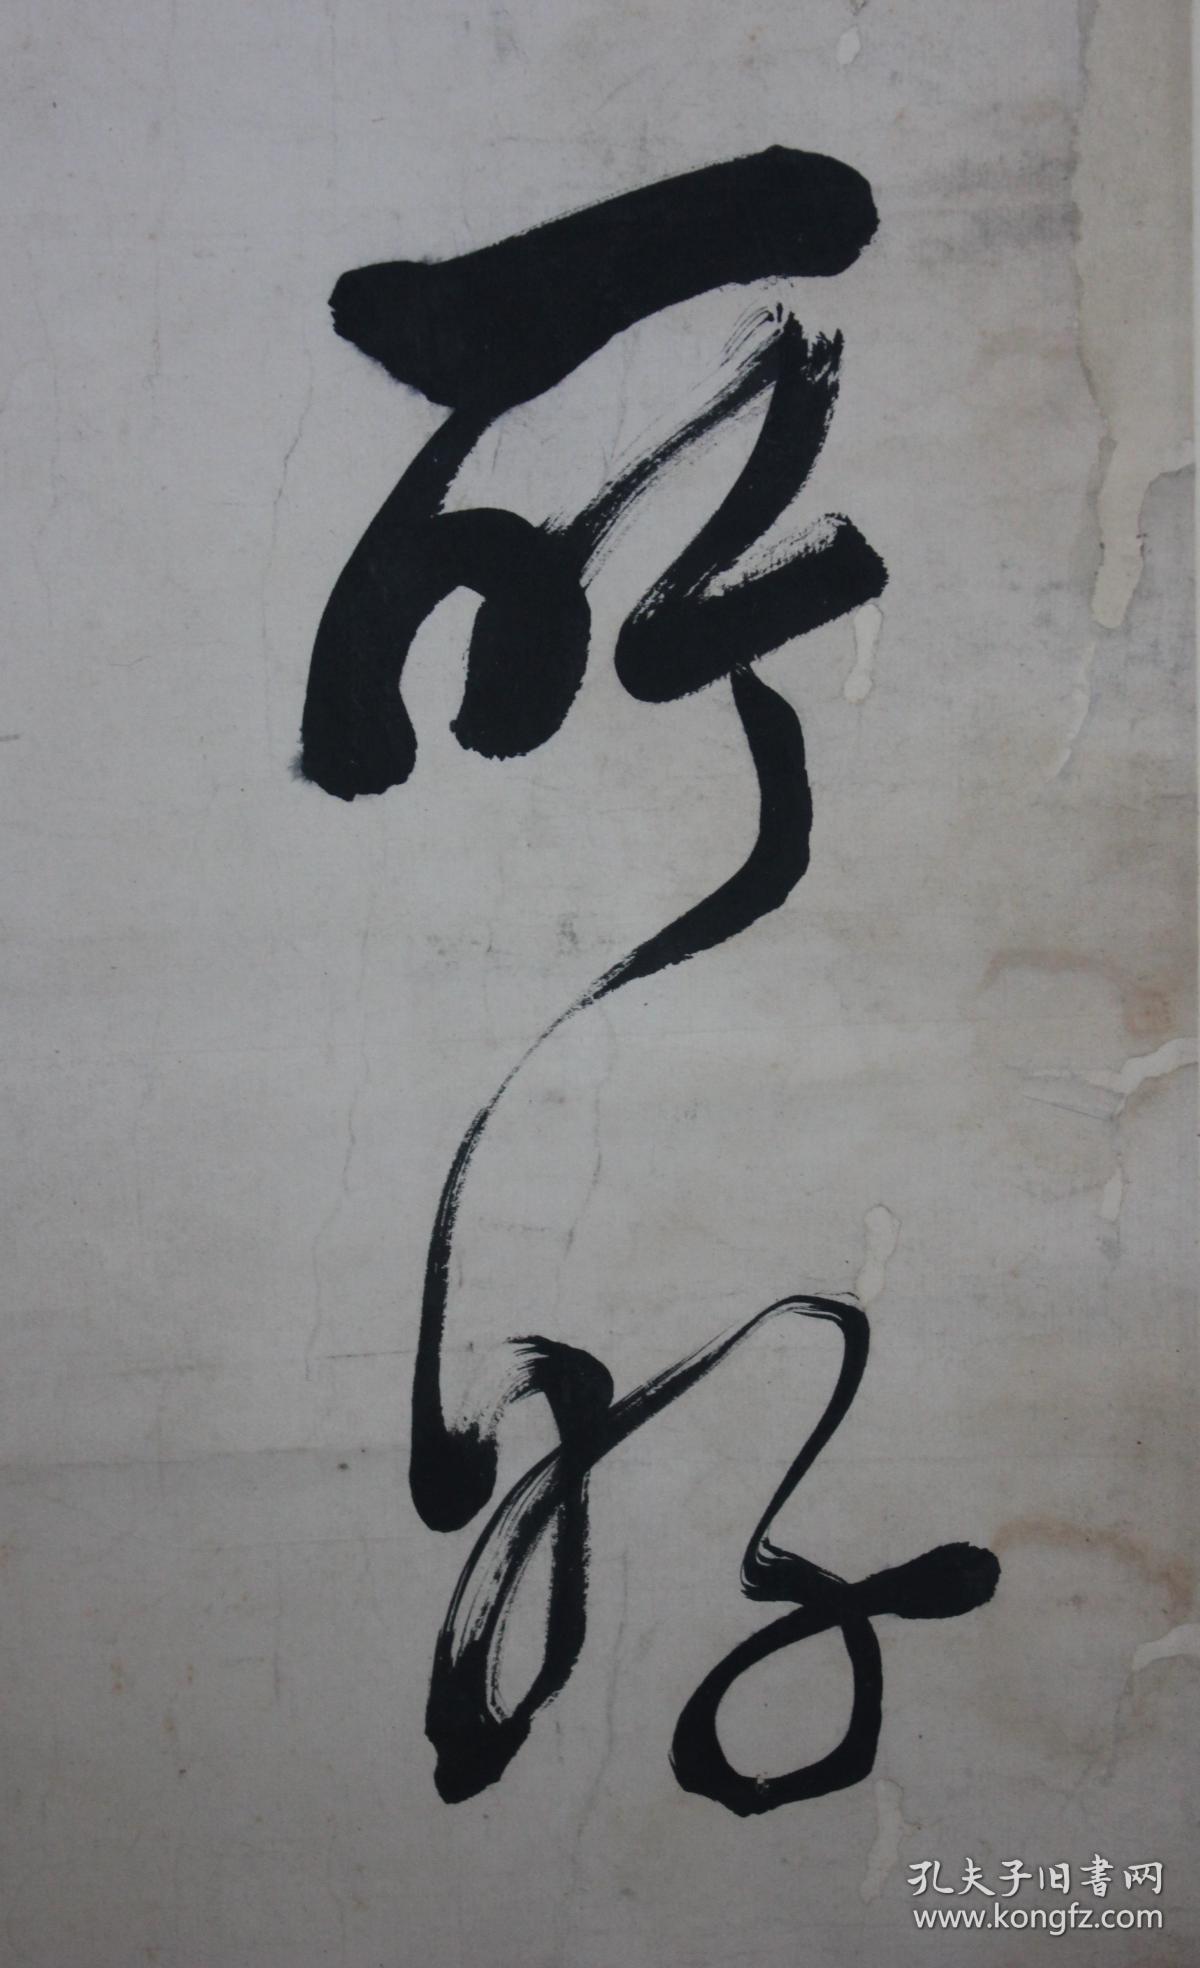 所好
孔夫子旧书网
www.kongfz.com